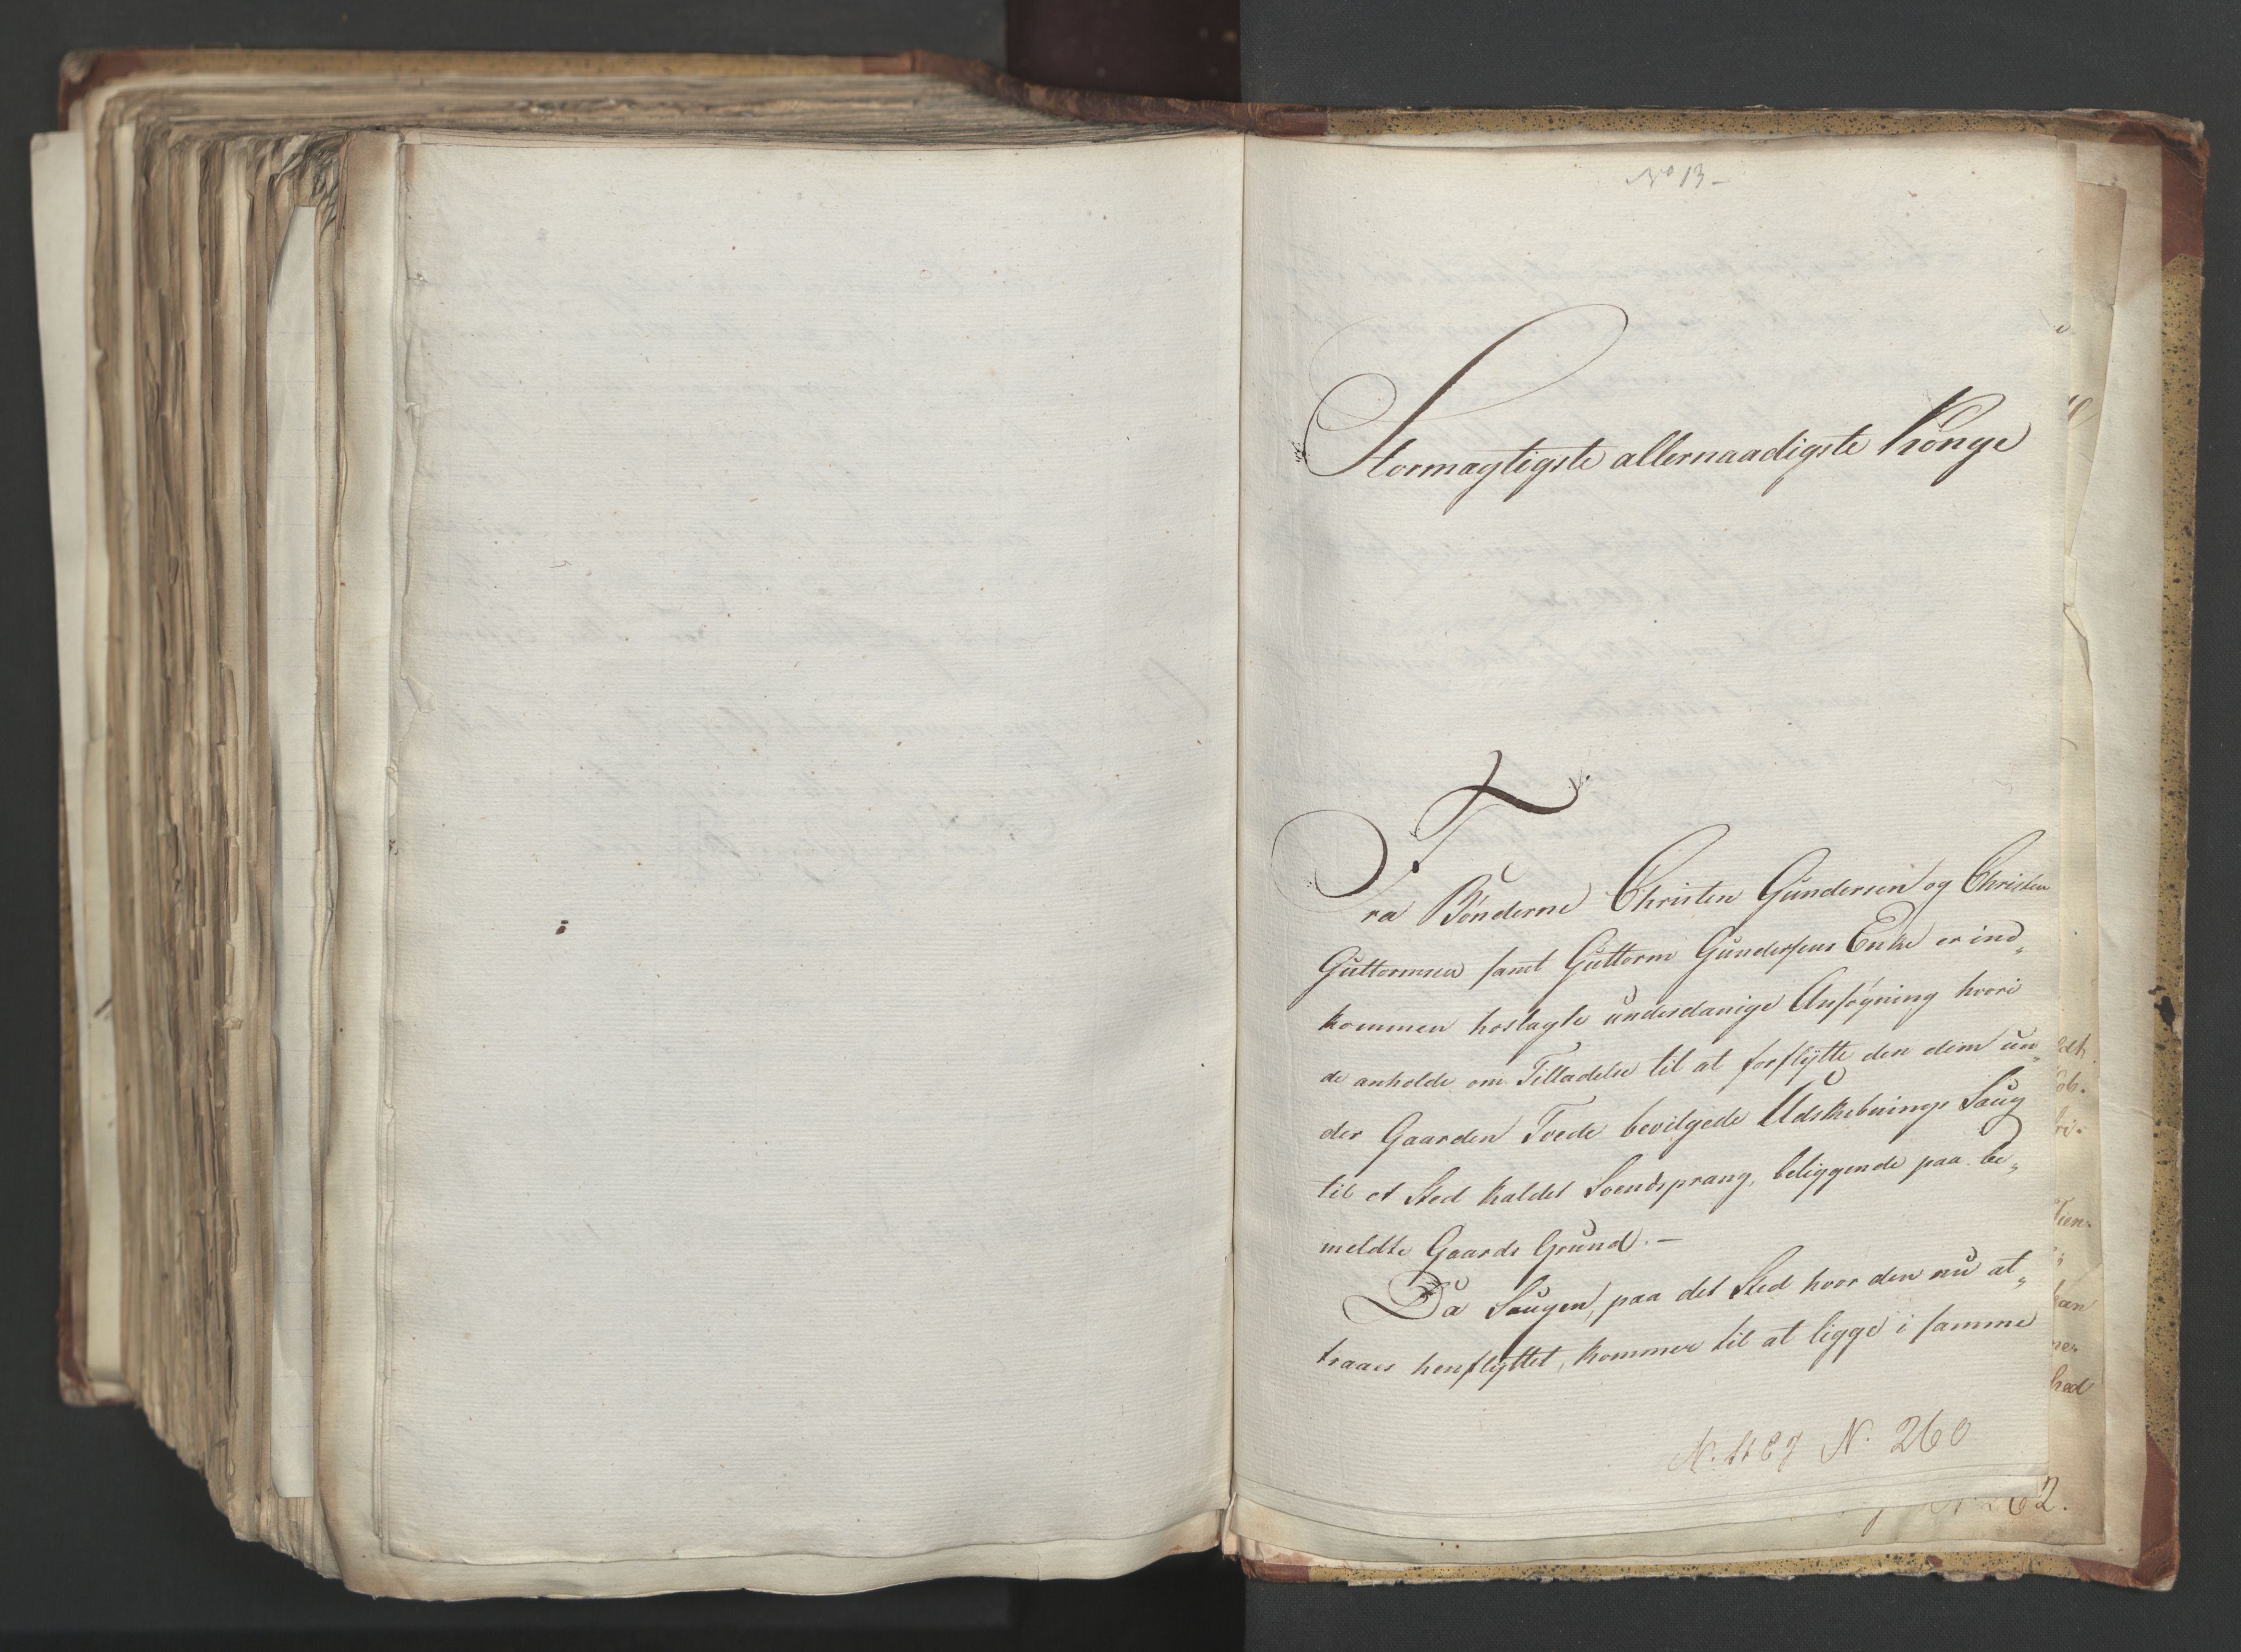 No 13-
Stormagtigste allernaadigste Konge
Fra Bønderne Christen Gundersen og Christen
Guttormsen samt Guttorm Gundersens Enke er ind„
kommen hoslagte underdanige Ansøgning hvori
de anholde om Tilladelse til at forflytte den dem un„
der Gaarden Tvede bevilgede Udskibnings Saug
til et Sted kaldet Svendsprang, beliggende paa be„
meldte Gaards Grund.-
Da Saugen, paa det Sted hvor den nu at„
traaes henflyttet, kommer til at ligge i samme
N. 260